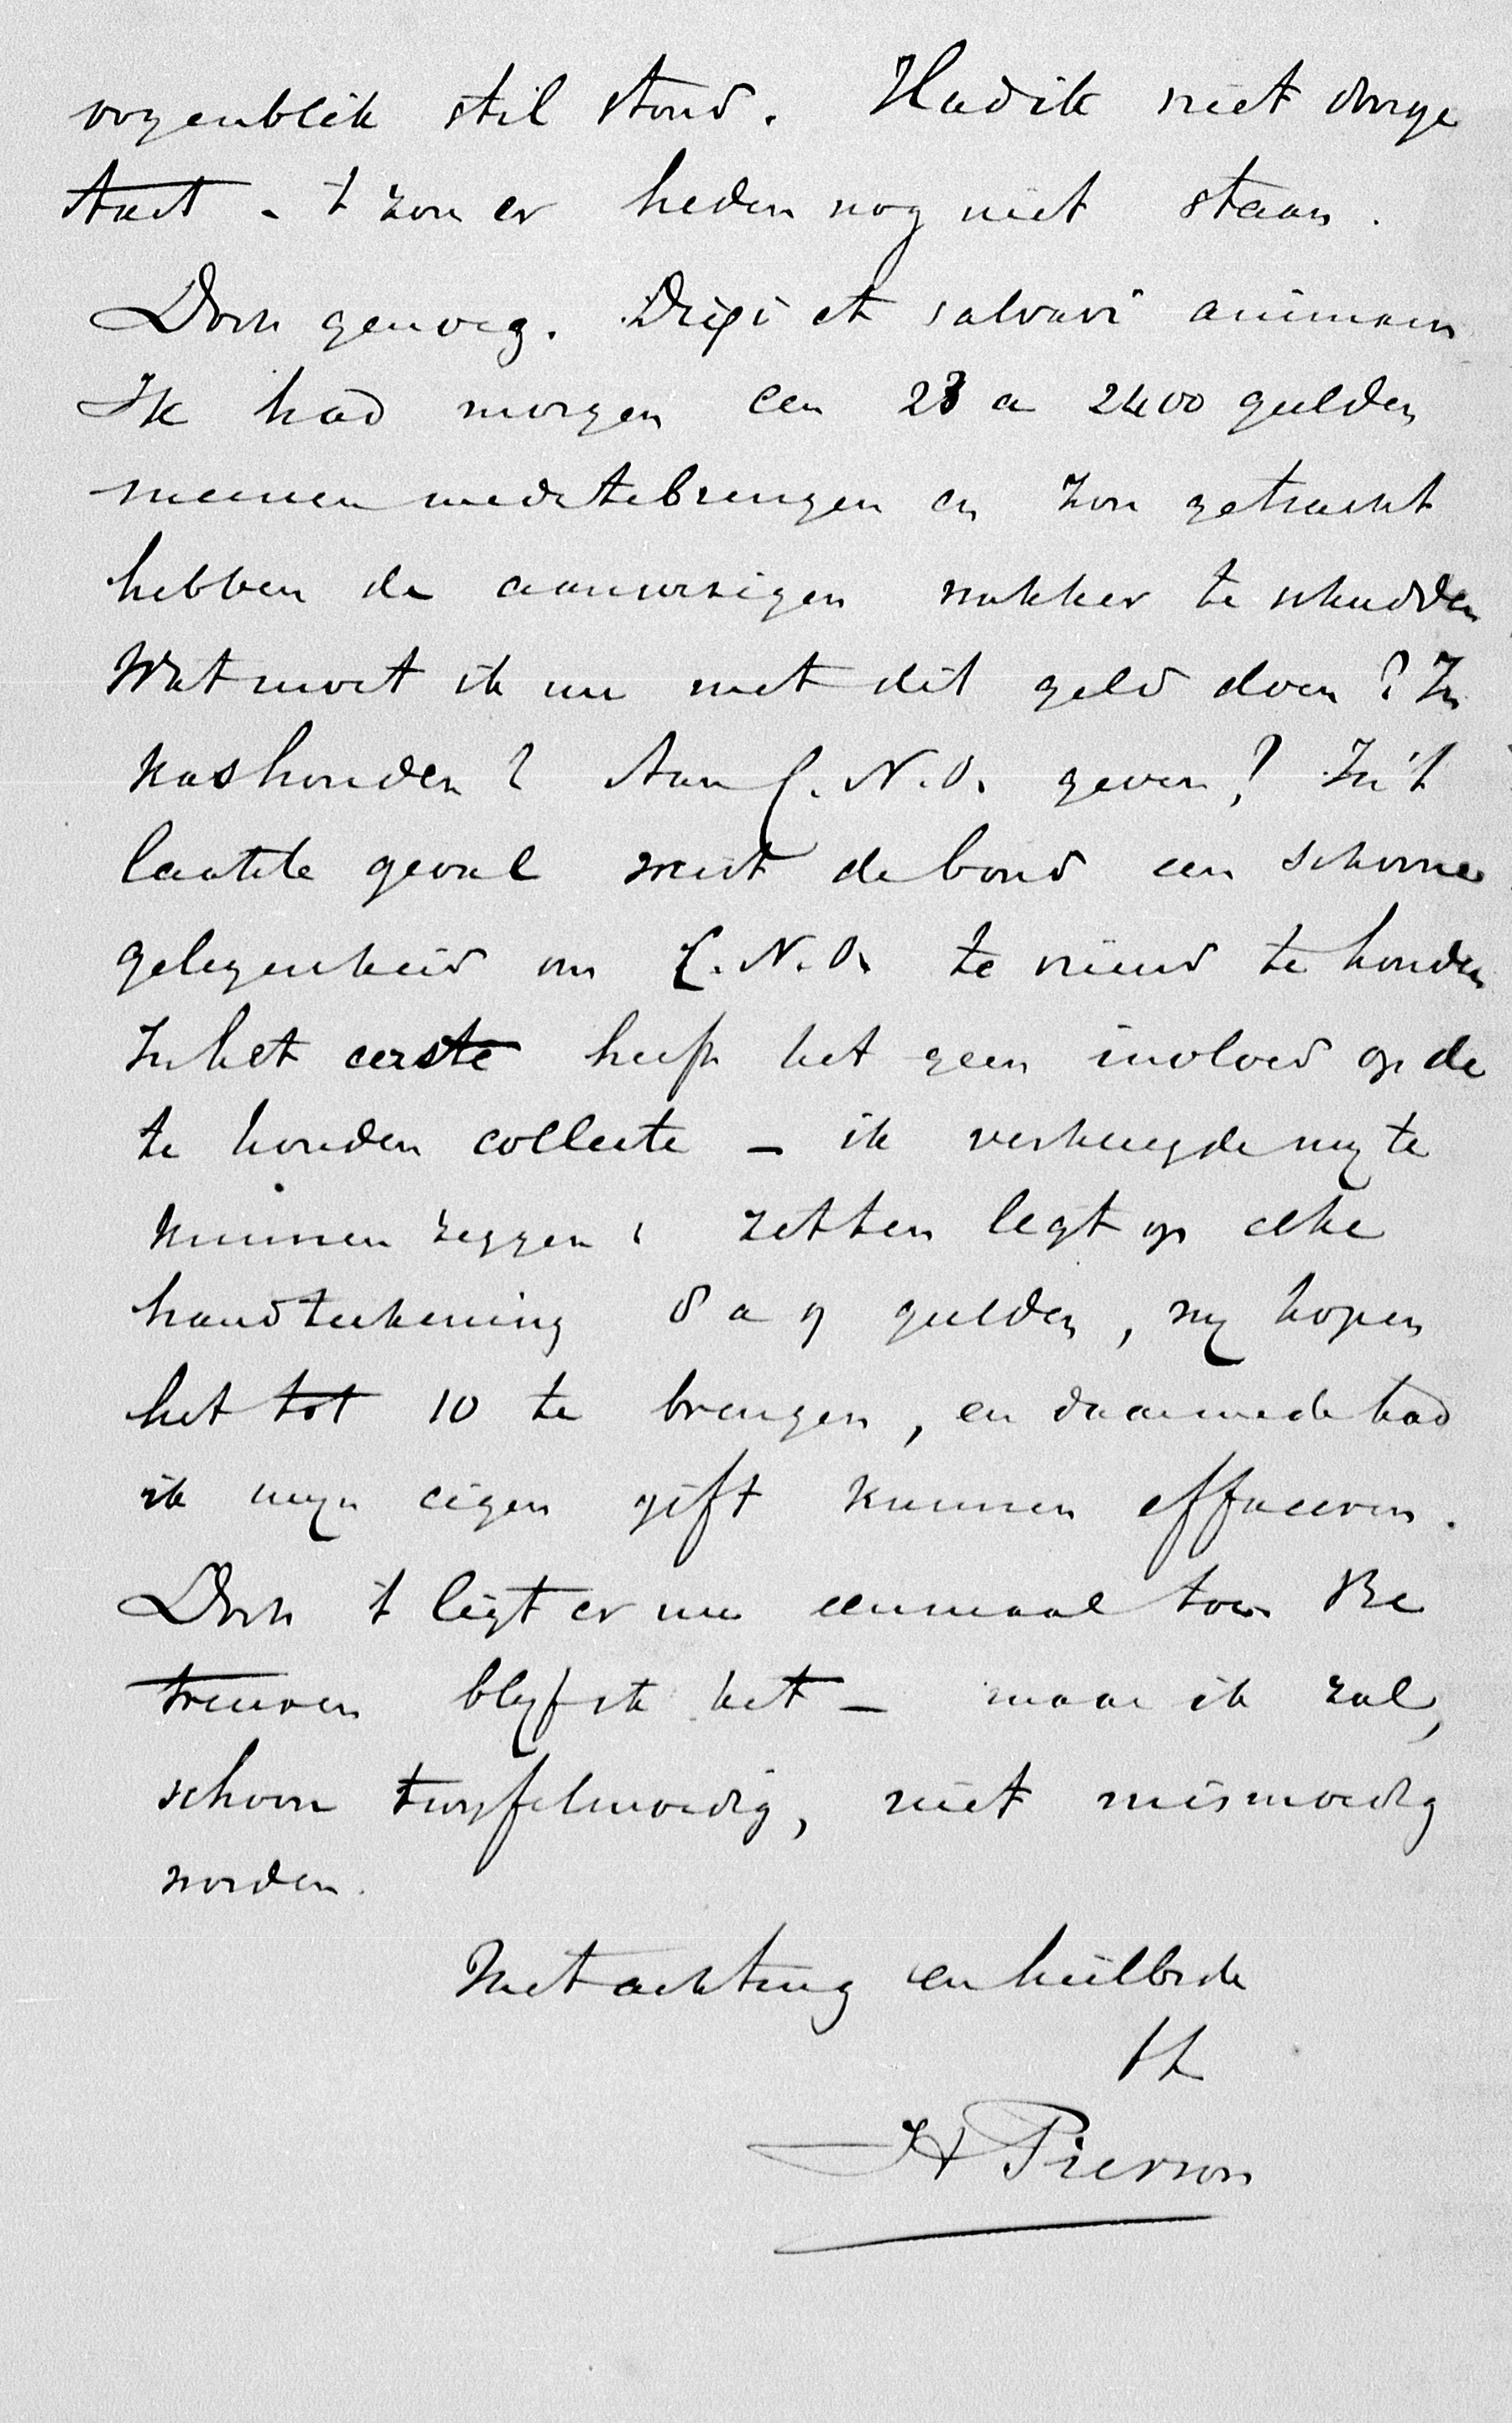 oogenblik stil stond. Had ik niet doorge
tast - 't zou er heden nog niet staan.
Doch genoeg. Dixi et salvavi animam
Ik had morgen een 23 a 2400 gulden
meenen mede te brengen en zou getracht
hebben de aanwezigen wakker te schudden
Wat moet ik nu met dit geld doen? In
kas houden? Aan C.N.O. geven? In 't
laatste geval weet de bond een schoone
gelegenheid om C.N.O. te vriend te houden
In het eerste heeft het geen invloed op de
te houden collecte - ik verheugde mij te
kunnen zeggen: Zetten legt op elke
handteekening 8 a 9 gulden, wij hopen
het tot 10 te brengen, en daarmede had
ik mijn eigen gift kunnen effaceeren.
Doch 't ligt er nu eenmaal toe. Be
treuren blijf ik het - maar ik zal,
schoon twijfelmoedig, niet mismoedig
worden.
Met achting en heilbede
H Pierson